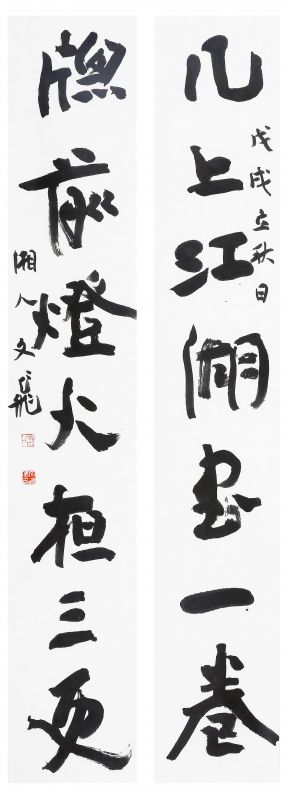 几上江湖書一卷
戊戌立秋日
牕前燈火恒三更
湘人文